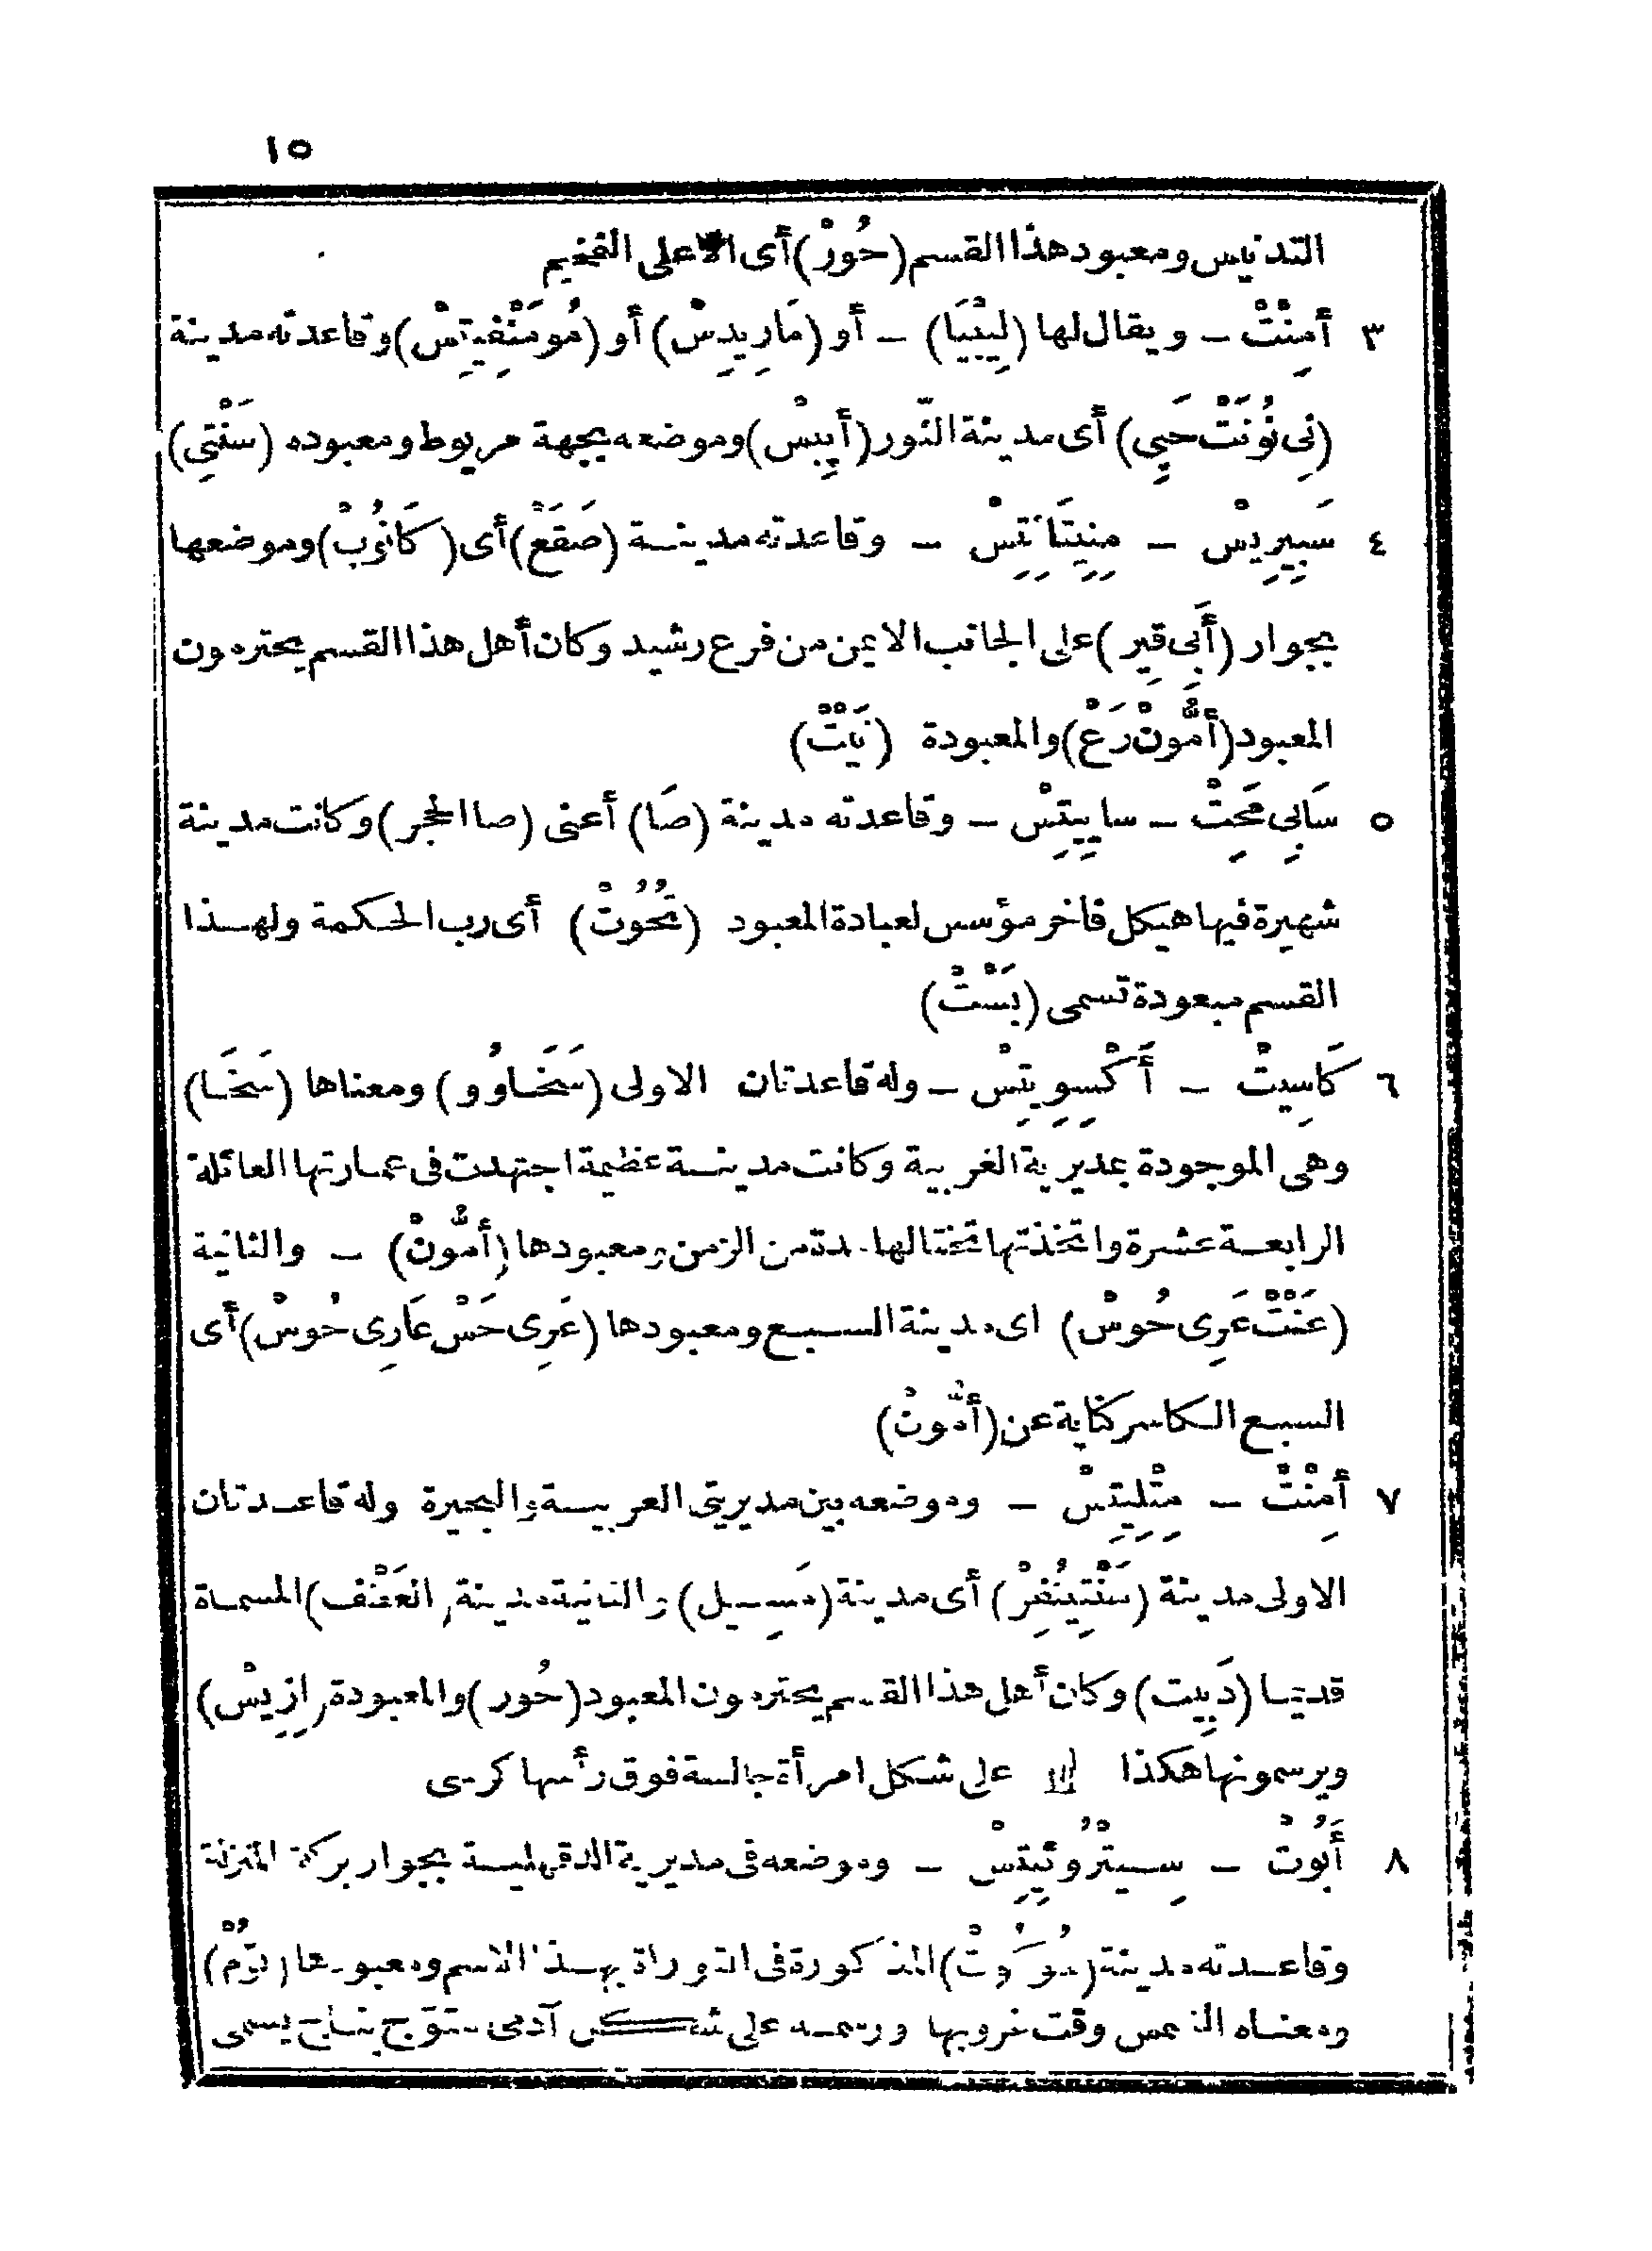 ١٥
التدنيس ومعبود هذا القسم (حُورْ) أى الاعلى الفخيم
٣ أَمِنْتْ – ويقال لها (لِيْبْيَا) – أو (مَارِيدِسْ) أو (مُومَنْفِيتِسْ) وقاعدته مدينة
(نِى نُونَتْ حَپِى) أى مدينة الثور (أَپِيسْ) وموضعه بجهة مريوط ومعبوده (سَنْتِى)
٤ سَبِيرِيسْ – مِنِيتَائِتِسْ – وقاعدته مدينة (صَقَعْ) أى (كَانُوبْ) وموضعها
بجوار (أَبِى قِير) على الجانب الايمن من فرع رشيد وكان أهل هذا القسم يحترمون
المعبود (أَمُّونْ رَعْ) والمعبودة (نَيْتْ)
٥ سَابِى مَحِتْ – سايِيتِسْ – وقاعدته مدينة (صَا) أعنى (صا الحجر) وكانت مدينة
شهيرة فيها هيكل فاخر مؤسس لعبادة المعبود (تُحُوتْ) أى رب الحكمة ولهذا
القسم مبعودة تسمى (بَسْتْ)
٦ كَاسِيتْ – أَكْسِوِيتِسْ – وله قاعدتان الاولى (سَخَاوُو) ومعناها (سَخَا)
وهى الموجودة بمديرية الغربية وكانت مدينة عظيمة اجتهدت فى عمارتها العائلة
الرابعة عشرة واتخذتها تختا لها مدة من الزمن ومعبودها (أَمُّونْ) – والثانية
(عَنْتْ عَرِى حُوسْ) اى مدينة السبع ومعبودها (عَرِى حَسْ عَارِى حُوسْ) أى
السبع الكاسر كناية عن (أَمُّونْ)
٧ أَمِنْتْ – مِتْلِيتِسْ – وموضعه بين مديريتى الغربية والبحيرة وله قاعدتان
الاولى مدينة (سَنْتِينُفِرْ) أى مدينة (مَسِيل) والثانية مدينة (العَطْف) المسماة
قديما (دَبِيت) وكان أهل هذا القسم يحترمون المعبود (حُور) والمعبودة (إِزِيسْ)
ويرسمونها هكذا على شكل امرأة جالسة فوق رأسها كرسى
٨ أَبُوتْ – سِيتْرُوئِيتِسْ – وموضعه فى مديرية الدقهلية بجوار بركة المنزلة
وقاعدته مدينة (سُوكُوتْ) المذكورة فى التوراة بهذا الاسم ومعبودها (تُومْ)
ومعناه الشمس وقت غروبها ورسمه على شكل آدمى متوّج بتاج يسمى